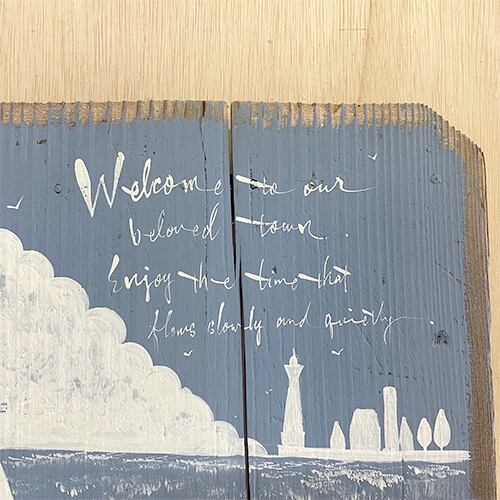 Welcome to our
beloved town.
Enjoy the time that
flows slowly and quietly.